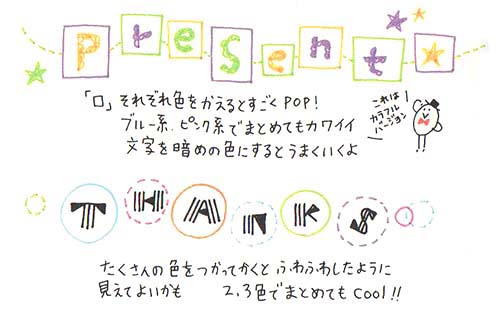 Present
「ロ」それぞれ色をかえるとすごくPOP!
ブルー系、ピンク系でまとめてもカワイイ
文字を暗めの色にするとうまくいくよ
これは
カラフル
バージョン
THANKS
たくさんの色をつかってかくと ふわふわしたように
見えてよいかも 2,3色でまとめてもCOOl!!